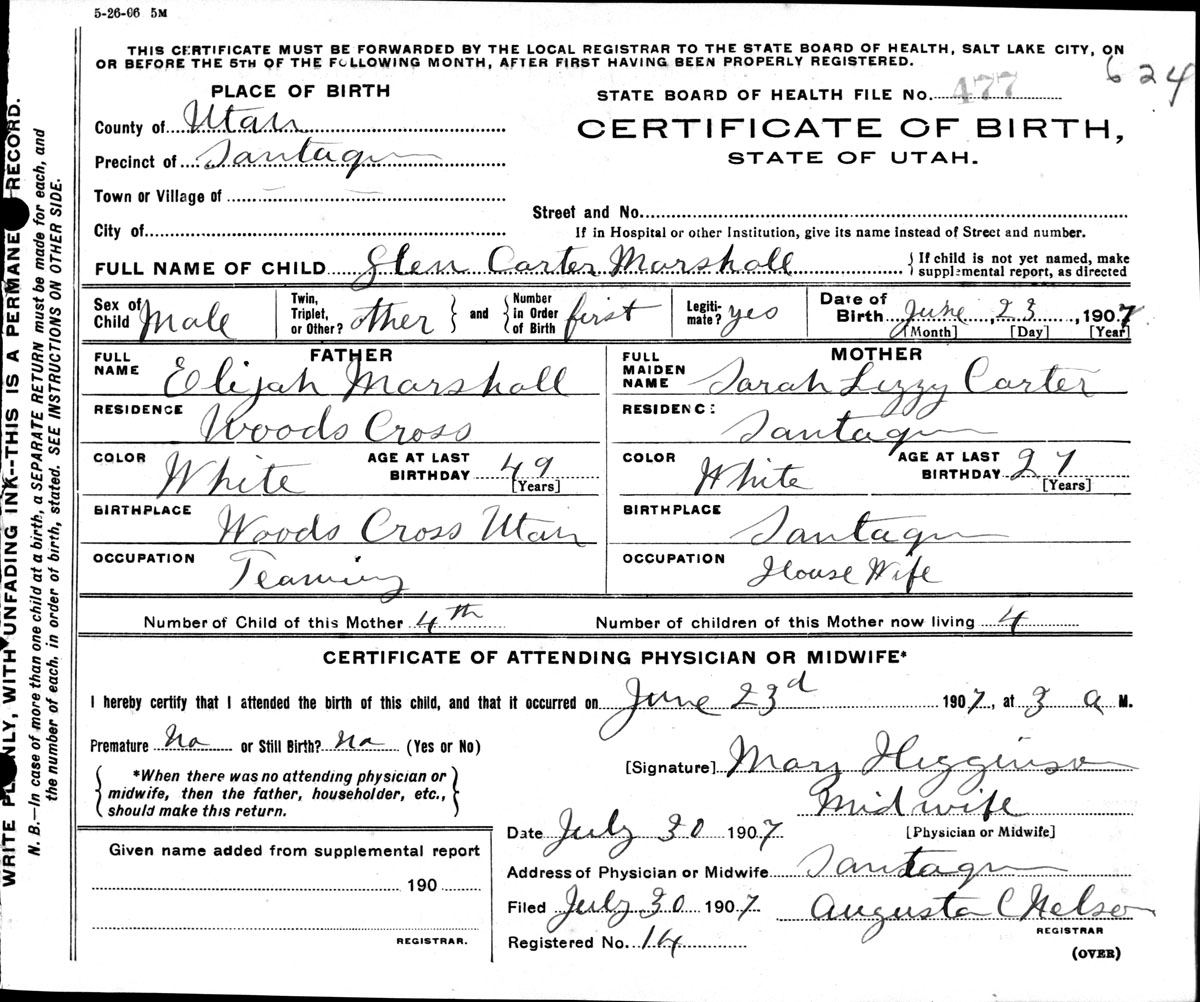 5-26-06 5M
THIS CERTIFICATE MUST BE FORWARDED BY THE LOCAL REGISTRAR TO THE STATE BOARD OF HEALTH, SALT LAKE CITY, ON
OR BEFORE THE 5TH OF THE FOLLOWING MONTH, AFTER FIRST HAVING BEEN PROPERLY REGISTERED.
624
PLACE OF BIRTH
STATE BOARD OF HEALTH FILE No. 477
County of Utah
CERTIFICATE OF BIRTH,
Precinct of Santaquin
STATE OF UTAH.
Town or Village of
Street and No.
City of
If in Hospital or other Institution, give its name instead of Street and number.
FULL NAME OF CHILD Glen Carter Marshall { If child is not yet named, make
supplemental report, as directed
Sex of Child Male Twin, Triplet, or Other? other } and { Number in Order of Birth first Legitimate? yes Date of Birth June, 23, 1907
[Month] [Day] [Year]
FATHER
MOTHER
FULL NAME Elijah Marshall
FULL MAIDEN NAME Sarah Lizzy Carter
RESIDENCE Woods Cross
RESIDENCE Santaquin
COLOR White AGE AT LAST BIRTHDAY 49 [Years]
COLOR White AGE AT LAST BIRTHDAY 27 [Years]
BIRTHPLACE Woods Cross Utah
BIRTHPLACE Santaquin
OCCUPATION Teaming
OCCUPATION House Wife
Number of Child of this Mother 4th Number of children of this Mother now living 4
CERTIFICATE OF ATTENDING PHYSICIAN OR MIDWIFE*
I hereby certify that I attended the birth of this child, and that it occurred on June 23d 1907, at 3 a M.
Premature No or Still Birth? No (Yes or No)
{ *When there was no attending physician or
midwife, then the father, householder, etc.,
should make this return. }
[Signature] Mary Higginson
Midwife
[Physician or Midwife]
Date July 30 1907
Given name added from supplemental report
190
REGISTRAR.
Address of Physician or Midwife Santaquin
Filed July 30 1907 Augusta C Nelson
REGISTRAR
Registered No. 14
(OVER)
WRITE PLAINLY, WITH UNFADING INK--THIS IS A PERMANENT RECORD.
N. B.—In case of more than one child at a birth, a SEPARATE RETURN must be made for each, and
the number of each, in order of birth, stated. SEE INSTRUCTIONS ON OTHER SIDE.